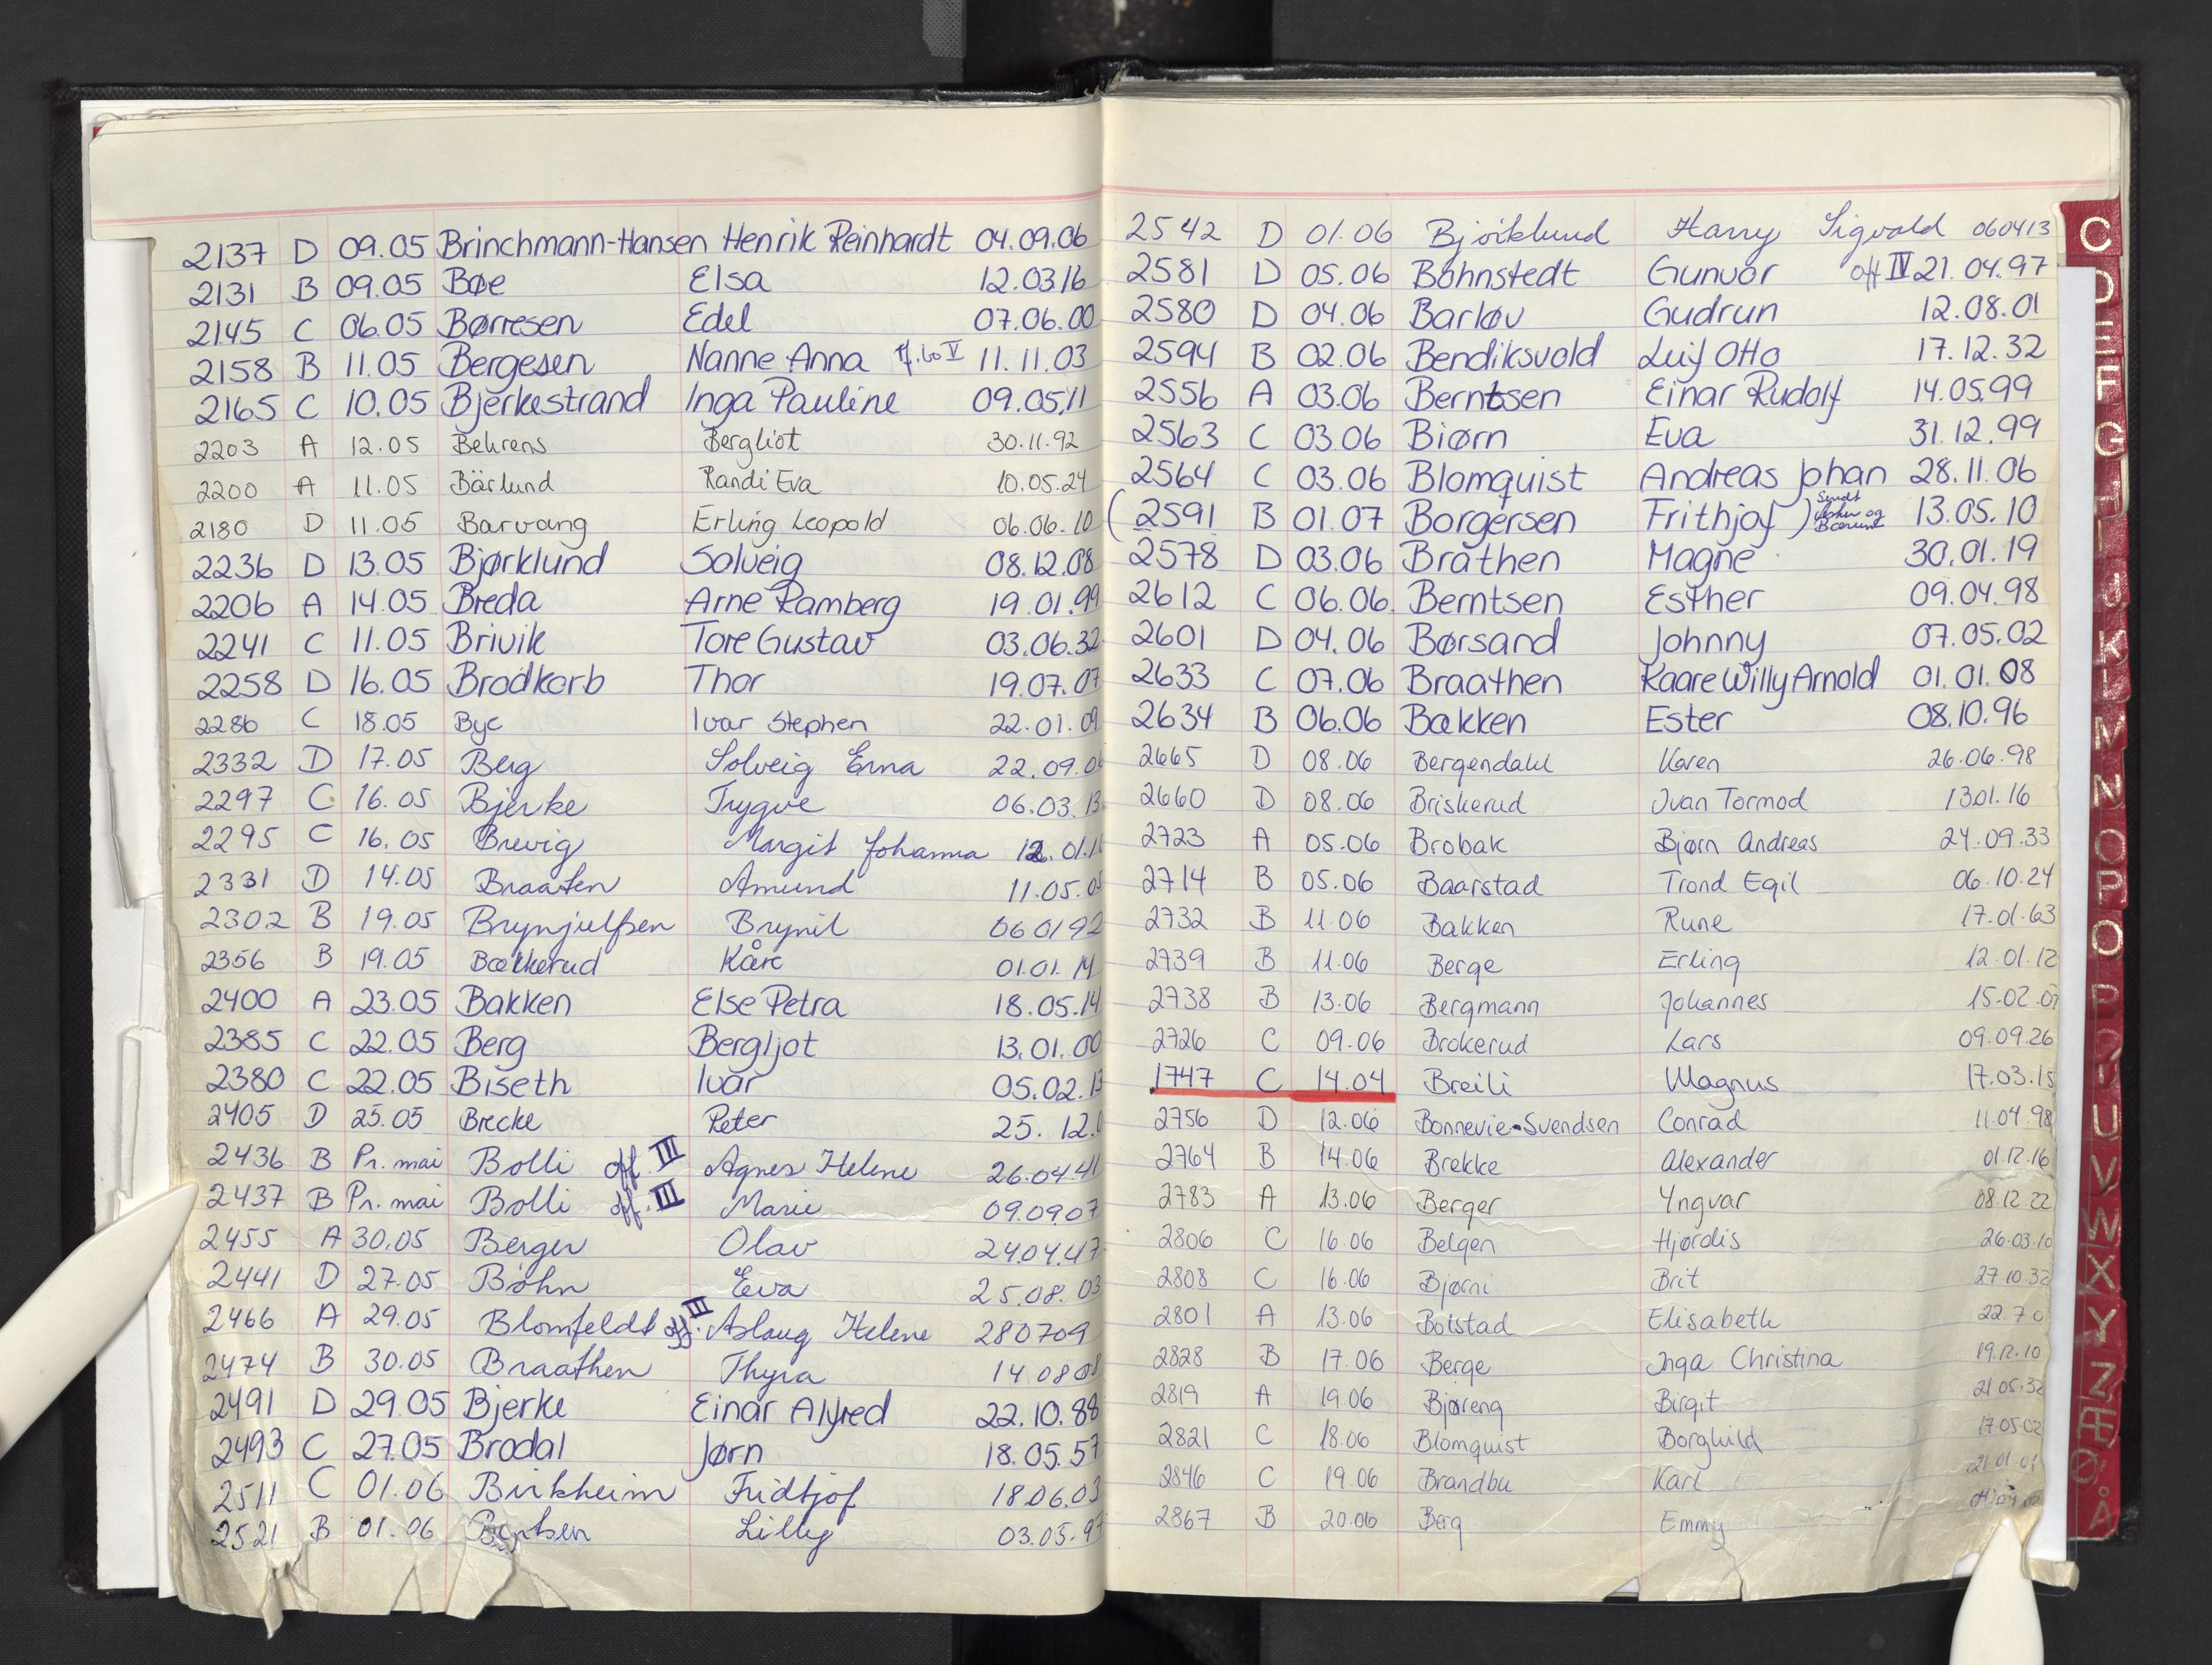 2137 D 09.05 Brinchmann-Hansen Henrik Reinhardt 04.09.06
2131 B 09.05 Bøe Elsa 12.03.16
2145 C 06.05 Børresen Edel 07.06.00
2158 B 11.05 Bergesen Nanne Anna V 11.11.03
2165 C 10.05 Bjerkestrand Inga Pauline 09.05.11
2203 A 12.05 Behrens Bergliot 30.11.92
2200 A 11.05 Bärlund Randi Eva 10.05.24
2180 D 11.05 Barvang Erling Leopold 06.06.10
2236 D 13.05 Bjørklund Solveig 08.12.08
2206 A 14.05 Breda Arne Ramberg 19.01.99
2241 C 11.05 Brivik Tore Gustav 03.06.32
2258 D 16.05 Brodkorb Thor 19.07.07
2286 C 18.05 Bye Ivar Stephen 22.01.09
2332 D 17.05 Berg Solveig Erna 22.09.0
2297 C 16.05 Bjerke Trygve 06.03.13
2295 C 16.05 Brevig Margit Johanna 12.01.1
2331 D 14.05 Braaten Amund 11.05.0
2302 B 19.05 Brynjulfsen Brynil 060192
2356 B 19.05 Bækkerud Kåre 01.01.14
2400 A 23.05 Bakken Else Petra 18.05.14
2385 C 22.05 Berg Bergljot 13.01.00
2380 C 22.05 Biseth Ivar 05.02.13
2405 D 25.05 Brecke Peter 25.12.
2436 B Pr. mai Bolli off. III Agnes Helene 26.04.41
2437 B Pr. mai Bolli off. III Marie 09.0907
2455 A 30.05 Berger Olav 240447
2441 D 27.05 Bøhn Eva 25.08.03
2466 A 29.05 Blomfeldt off. III Aslaug Helene 280709
2474 B 30.05 Braathen Thyra 140808
2491 D 29.05 Bjerke Einar Alfred 22.10.88
2493 C 27.05 Brodal Jørn 18.05.57
2511 C 01.06 Birkheim Fridtjof 18.06.03
2521 B 01.06 Lilly 03.05.97
2542 D 01.06 Bjørklund Harry Sigvald 060413
2581 D 05.06 Bøhnstedt Gunvor off IV 21.04.97
2580 D 04.06 Barløv Gudrun 12.08.01
2594 B 02.06 Bendiksvold Leif Otto 17.12.32
2556 A 03.06 Berntsen Einar Rudolf 14.05.99
2563 C 03.06 Biørn Eva 31.12.99
2564 C 03.06 Blomquist Andreas Johan 28.11.06
(2591 B 01.07 Borgersen Frithjof) Sendt Asker og Bærum 13.05.10
2578 D 03.06 Bråthen Magne 30.01.19
2612 C 06.06 Berntsen Esther 09.04.98
2601 D 04.06 Børsand Johnny 07.05.02
2633 C 07.06 Braathen Kaare Willy Arnold 01.01.08
2634 B 06.06 Bakken Ester 08.10.96
2665 D 08.06 Bergendahl Karen 26.06.98
2660 D 08.06 Briskerud Ivan Tormod 1301.16
2723 A 05.06 Brobak Bjørn Andreas 24.09.33
2714 B 05.06 Baarstad Trond Egil 06.10.24
2732 B 11.06 Bakken Rune 17.01.63
2739 B 11.06 Berge Erling 12.01.12
2738 B 13.06 Bergmann Johannes 15.02.07
2726 C 09.06 Brokerud Lars 09.09.26
1747 C 14.04 Breili Magnus 17.03.15
2756 D 12.06 Bonnevie-Svendsen Conrad 11.04.98
2764 B 14.06 Brekke Alexander 01.12.16
2783 A 13.06 Berger Yngvar 08.12.22
2806 C 16.06 Belgen Hjørdis 26.03.10
2808 C 16.06 Bjørni Brit 27.10.32
2801 A 13.06 Botstad Elisabeth 22.7.0
2828 B 17.06 Berge Inga Christina 19.12.10
2819 A 19.06 Bjøreng Birgit 21.05.32
2821 C 18.06 Blomquist Borghild 17.05.02
2846 C 19.06 Brandbu Karl 21.01.01
2867 B 20.06 Berg Emmy
C
D
E
F
G
H
I
J
K
L
M
N
O
P
Q
P
R
U
V
W
X
Y
Z
Æ
Ø
Å